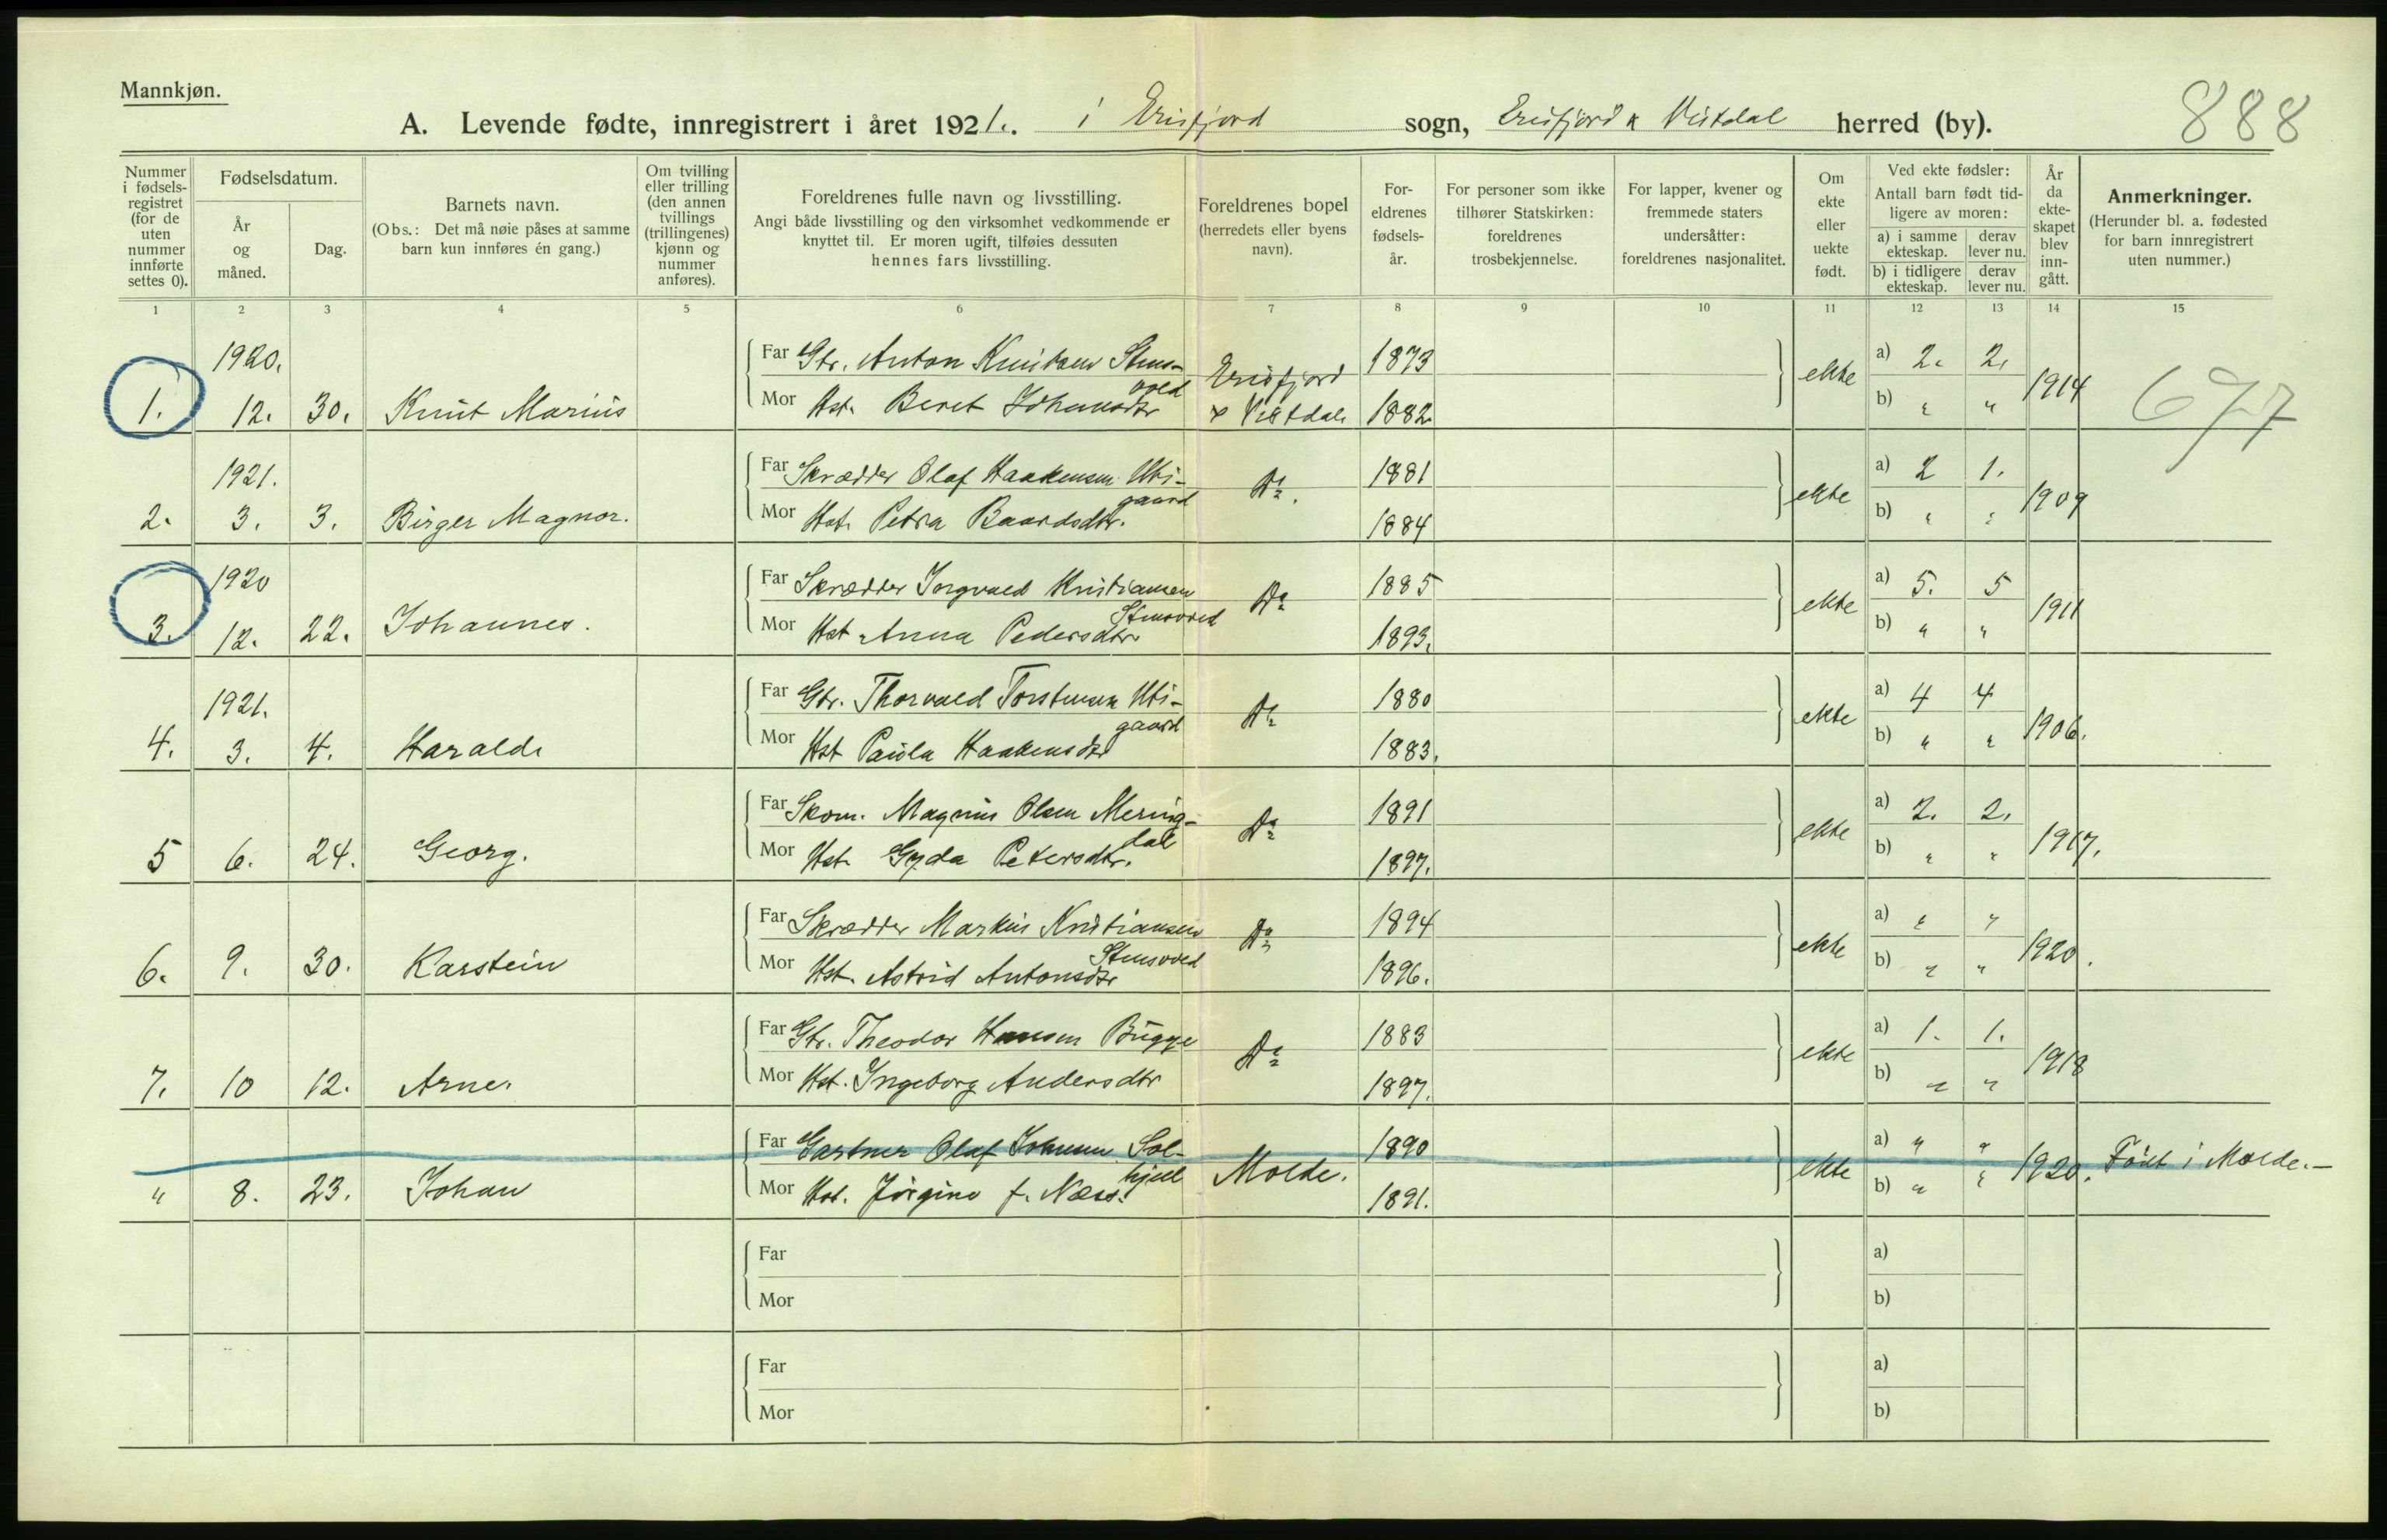 Mannkjøn.
888
A. Levende fødte, innregistrert i året 1921. i Erisfjord sogn, Erisfjord & Vistdal herred (by).
Nummer i fødselsregistret (for de uten nummer innførte settes 0).
Fødselsdatum.
År og måned.
Dag.
Barnets navn.
(Obs.: Det må nøie påses at samme barn kun innføres én gang.)
Om tvilling eller trilling (den annen tvillings (trillingenes) kjønn og nummer anføres).
Foreldrenes fulle navn og livsstilling.
Angi både livsstilling og den virksomhet vedkommende er knyttet til. Er moren ugift, tilføies dessuten hennes fars livsstilling.
Foreldrenes bopel (herredets eller byens navn).
Foreldrenes fødselsår.
For personer som ikke tilhører Statskirken: foreldrenes trosbekjennelse.
For lapper, kvener og fremmede staters undersåtter: foreldrenes nasjonalitet.
Om ekte eller uekte født.
Ved ekte fødsler: Antall barn født tidligere av moren:
a) i samme ekteskap. derav lever nu.
b) i tidligere ekteskap. derav lever nu.
År da ekteskapet blev inngått.
Anmerkninger.
(Herunder bl. a. fødested for barn innregistrert uten nummer.)
1 2 3 4 5 6 7 8 9 10 11 12 13 14 15
1920.
Far Gbr. Anton Knutsen Stensvold 1873 a) 2. 2.
1. 12. 30. Knut Marius Mor Hst. Beret Johansdtr Erisfjord & Vistdal. 1882 ekte b) " " 1914 677
1921.
Far Skrædder Olaf Haakensen Utigaard 1881 a) 2 1.
2. 3. 3. Birger Magnor. Mor Hst. Petra Baardsdtr. Do. 1884 ekte b) " " 1909
1920
Far Skrædder Torgvald Kristiansen Stensvold 1885 a) 5. 5
3. 12. 22. Johannes. Mor Hst Anna Pedersdtr Do 1893. ekte b) " " 1911
1921.
Far Gbr. Thorvald Torstensen Utigaard 1880 a) 4 4
4. 3. 4. Harald. Mor Hst Paula Haakensdtr Do 1883. ekte b) " " 1906.
Far Skom. Magnus Olsen Meringdal 1891 a) 2. 2.
5 6. 24. Georg. Mor Hst. Gyda Petersdtr. Do 1897. ekte b) " " 1917.
Far Skrædder Markus Kristiansen Stensvold 1894 a) " "
6. 9. 30. Karstein Mor Hst. Astrid Antonsdtr Do 1896. ekte b) " " 1920.
Far Gbr. Theodor Hansen Bugge 1883 a) 1. 1.
7. 10 12. Arne. Mor Hst. Ingeborg Andersdtr Do 1897. ekte b) " " 1918
Far Gartner Olaf Johnsen Solhjell 1890 a) " "
" 8. 23. Johan Mor Hst. Jørgine f. Næss. Molde. 1891. ekte b) " " 1920. Født i Molde.—
Far a)
Mor b)
Far a)
Mor b)